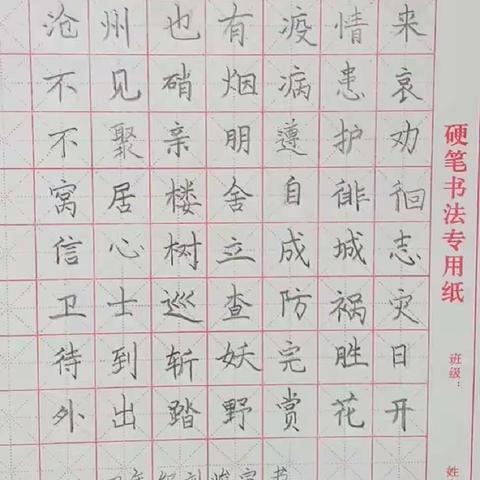 沧州也有疫情来
不见硝烟病患哀
不聚亲朋遵护劝
窝居楼舍自徘徊
信心树立成城志
卫士巡查防祸灾
待到斩妖完胜日
外出踏野赏花开
年级刘峻宇书
硬笔书法专用纸
班级：
姓